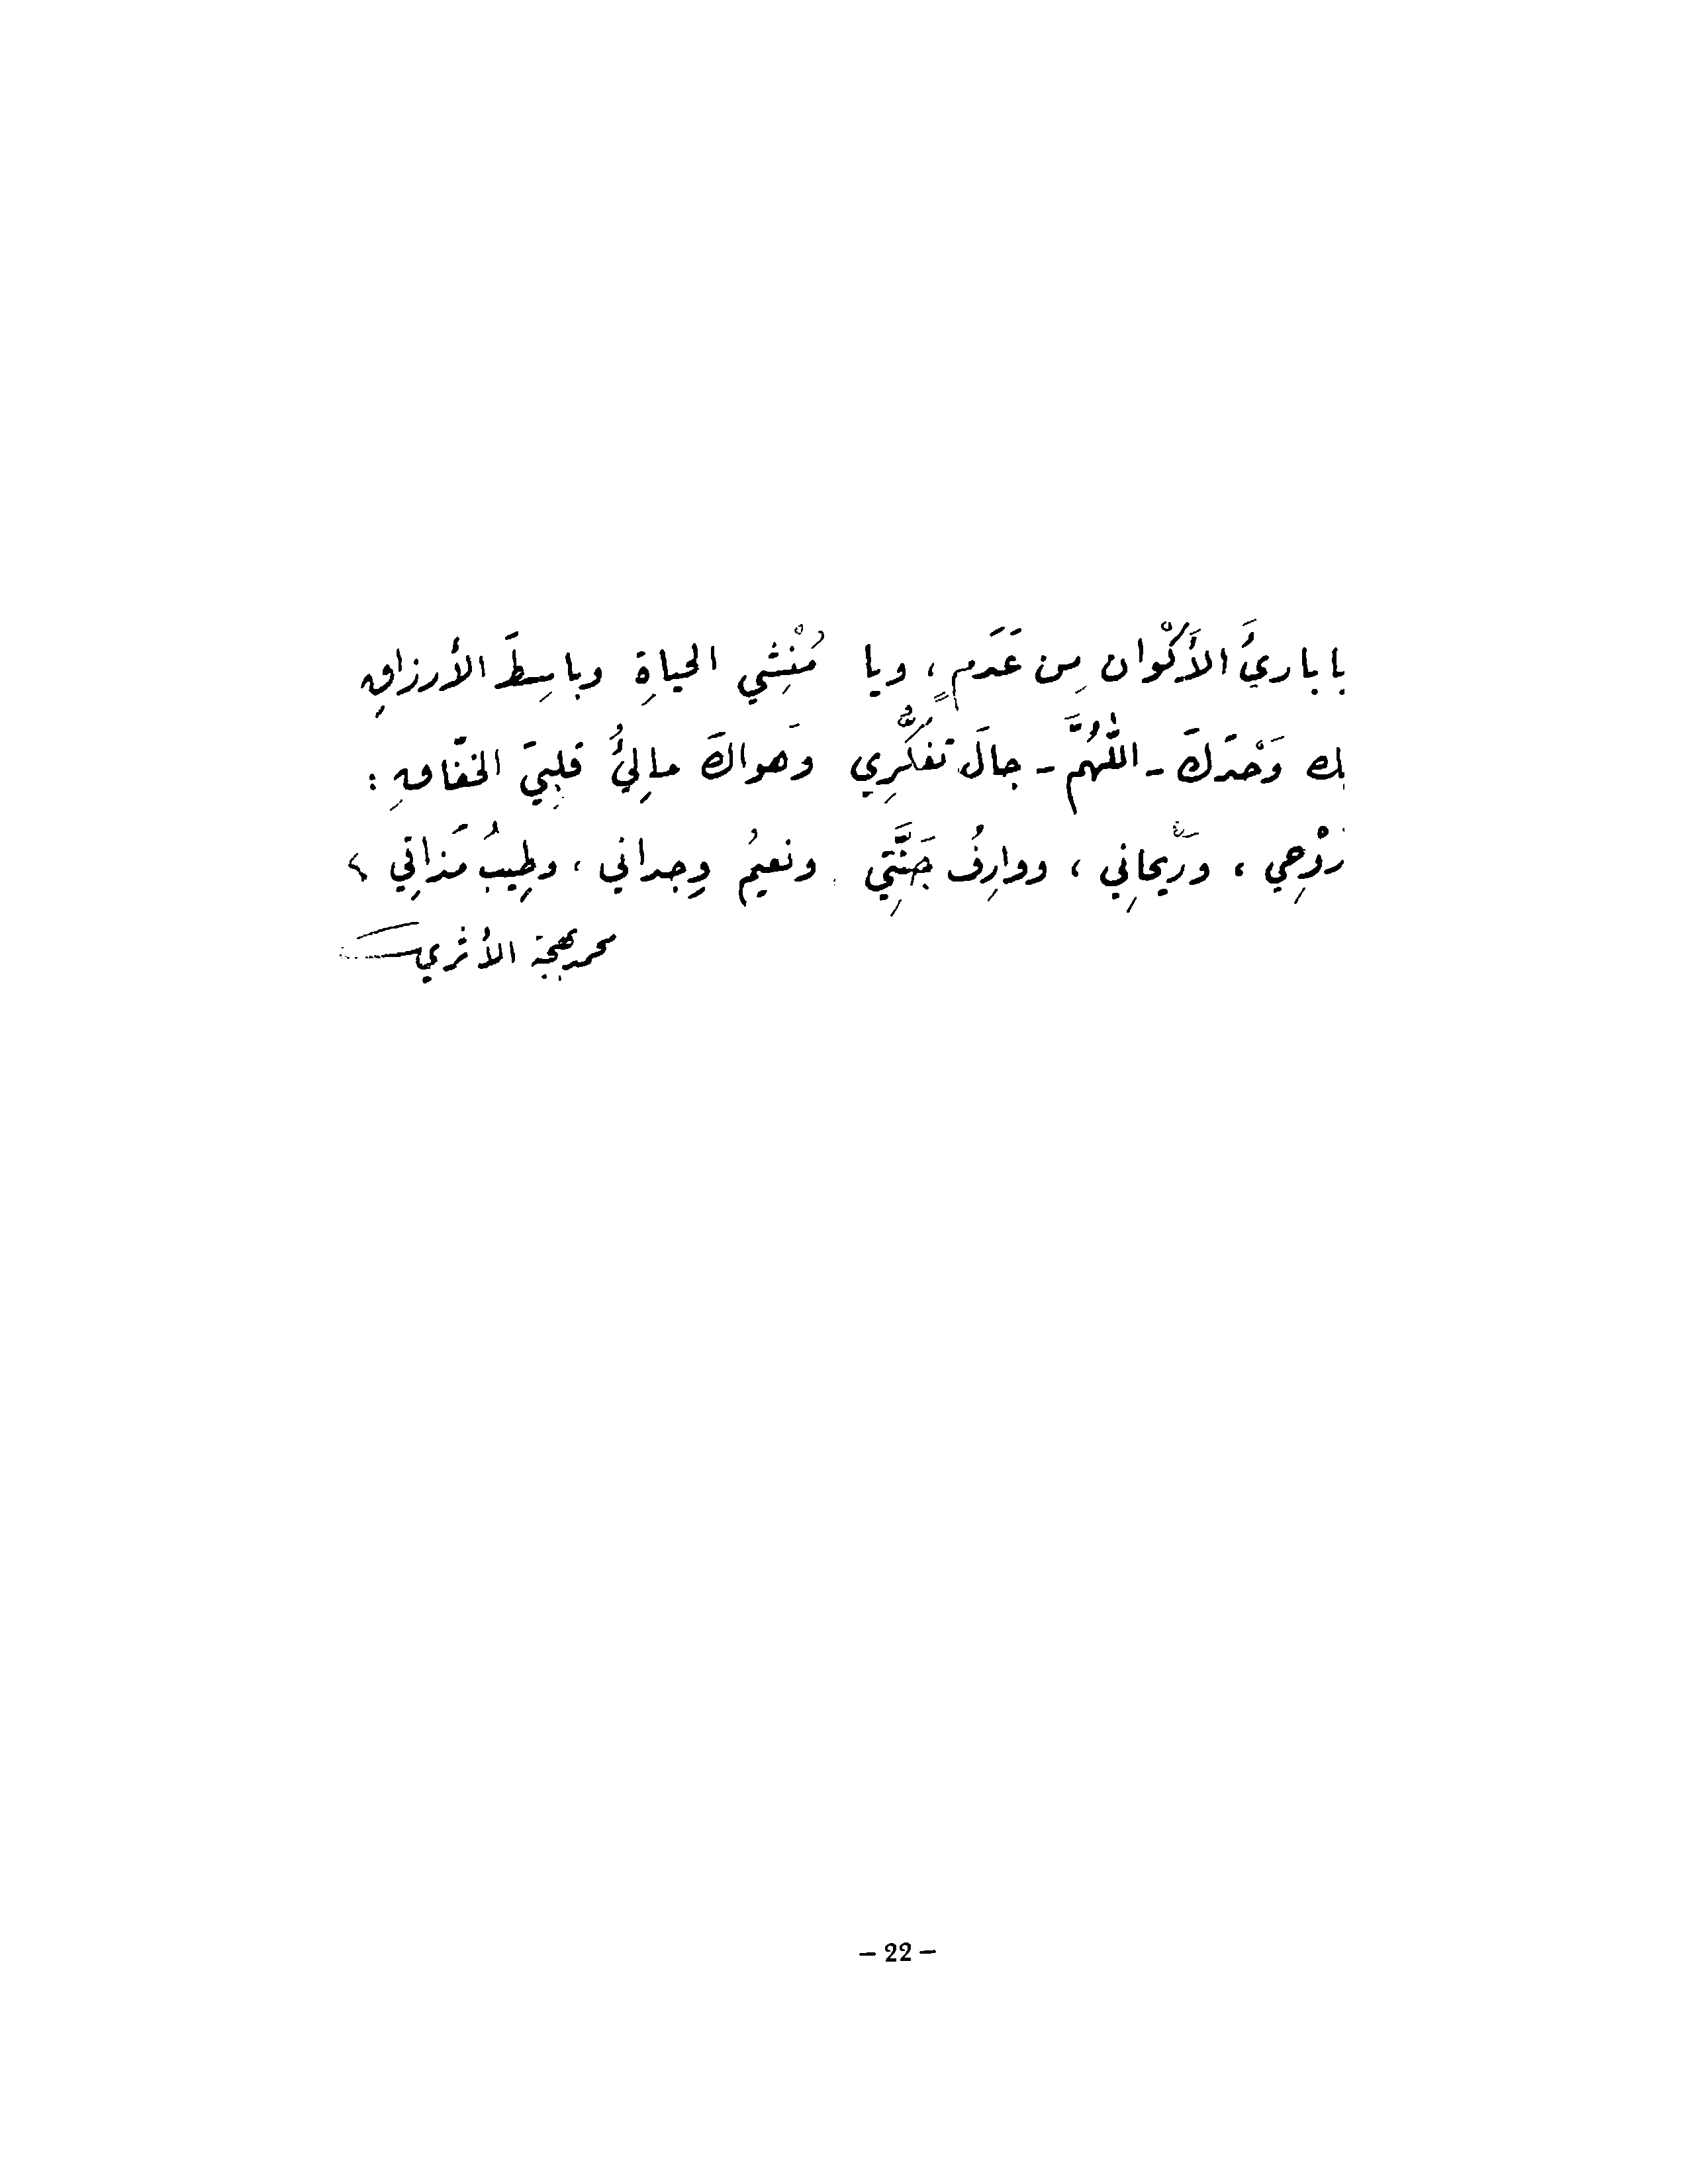 يا بارئَ الأَكْوان مِن عَدَمٍ، ويا مُنْشِي الحياةِ وباسِطَ الأرزاقِ
بك وَحْدَكَ - اللّٰهُمَّ - جالَ تفكُّرِي وَهواكَ مالِئُ قلبِيَ الخفّاقِ :
رَوْحِي ، ورَيْحانِي ، ووارِفُ جَنَّتِي ونعيمُ وِجداني ، وطِيبُ مَذاقِي
محمد بهجة الأثري
– 22 –